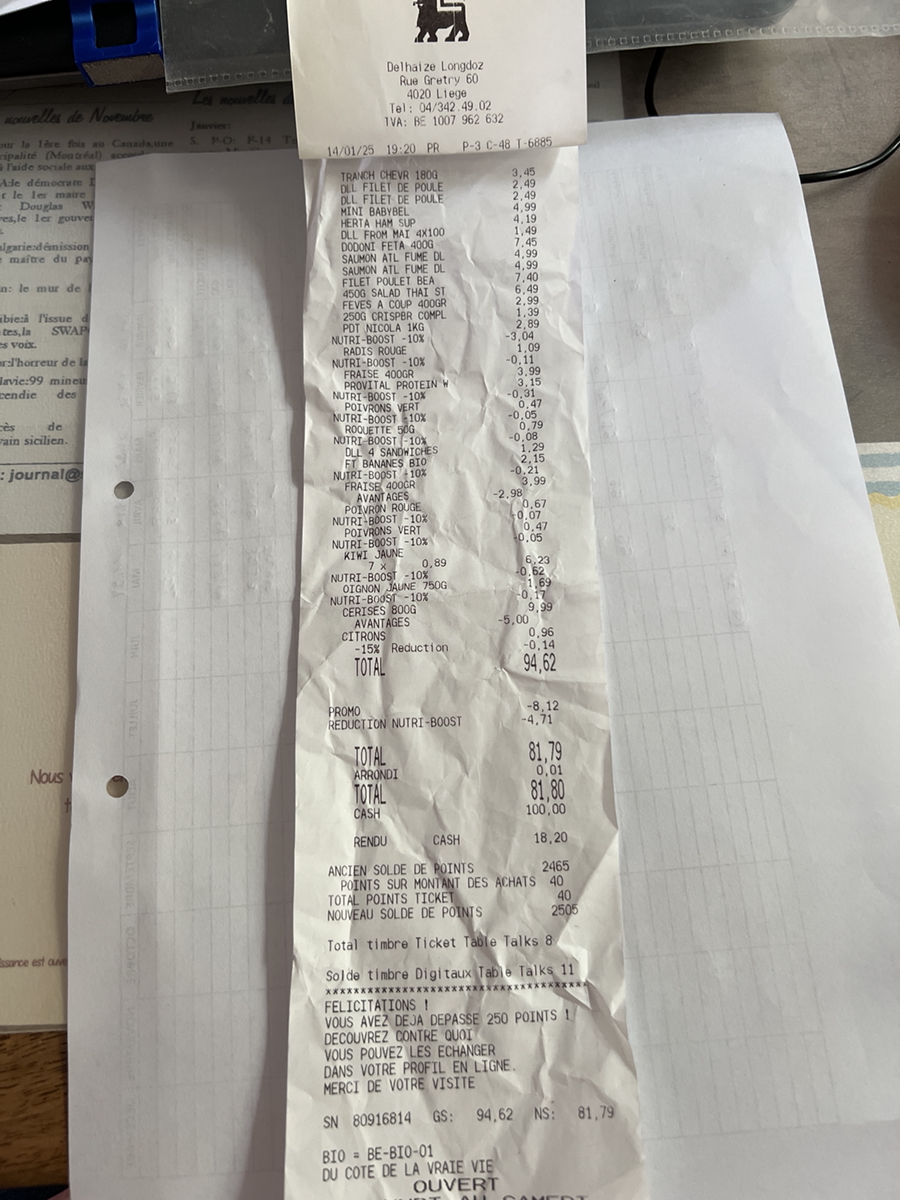 nouvelles de Novembre
Les nouvelles d
Janvier:
our la 1ère fois au Canada,une
cipalité (Montréal)
à l'aide sociale aux
le démocrate
r le 1er maire
Douglas W
ves,le 1er gouver
lgarie:démission
maître du pay
n: le mur de
ibie:à l'issue d
tes,la SWAP
es voix.
r:l'horreur de la
lavie:99 mineu
cendie des
cès de
vain sicilien.
: journal@
Nous
issance est ouve
Delhaize Longdoz
Rue Gretry 60
4020 Liege
Tel: 04/342.49.02
IVA: BE 1007 962 632
14/01/25 19:20 PR P-3 C-48 T-6885
TRANCH CHEVR 180G 3,45
DLL FILET DE POULE 2,49
DLL FILET DE POULE 2,49
MINI BABYBEL 4,99
HERTA HAM SUP 4,19
DLL FROM MAI 4X100 1,49
DODONI FETA 400G 7,45
SAUMON ATL FUME DL 4,99
SAUMON ATL FUME DL 4,99
FILET POULET BEA 7,40
450G SALAD THAI ST 6,49
FEVES A COUP 400GR 2,99
250G CRISPBR COMPL 1,39
PDT NICOLA 1KG 2,89
NUTRI-BOOST -10% -3,04
RADIS ROUGE 1,09
NUTRI-BOOST -10% -0,11
FRAISE 400GR 3,99
PROVITAL PROTEIN W 3,15
NUTRI-BOOST -10% -0,31
POIVRONS VERT 0,47
NUTRI-BOOST -10% -0,05
ROQUETTE 50G 0,79
NUTRI-BOOST -10% -0,08
DLL 4 SANDWICHES 1,29
FT BANANES BIO 2,15
NUTRI-BOOST -10% -0,21
FRAISE 400GR 3,99
AVANTAGES -2,98
POIVRON ROUGE 0,67
NUTRI-BOOST -10% -0,07
POIVRONS VERT 0,47
NUTRI-BOOST -10% -0,05
KIWI JAUNE
7 x 0,89 6,23
NUTRI-BOOST -10% -0,62
OIGNON JAUNE 750G 1,69
NUTRI-BOOST -10% -0,17
CERISES 800G 9,99
AVANTAGES -5,00
CITRONS 0,96
-15% Reduction -0,14
TOTAL 94,62
PROMO -8,12
REDUCTION NUTRI-BOOST -4,71
TOTAL 81,79
ARRONDI 0,01
TOTAL 81,80
CASH 100,00
RENDU CASH 18,20
ANCIEN SOLDE DE POINTS 2465
POINTS SUR MONTANT DES ACHATS 40
TOTAL POINTS TICKET 40
NOUVEAU SOLDE DE POINTS 2505
Total timbre Ticket Table Talks 8
Solde timbre Digitaux Table Talks 11
***************************************
FELICITATIONS !
VOUS AVEZ DEJA DEPASSE 250 POINTS !
DECOUVREZ CONTRE QUOI
VOUS POUVEZ LES ECHANGER
DANS VOTRE PROFIL EN LIGNE.
MERCI DE VOTRE VISITE
SN 80916814 GS: 94,62 NS: 81,79
BIO = BE-BIO-01
DU COTE DE LA VRAIE VIE
OUVERT
AU SAMEDI